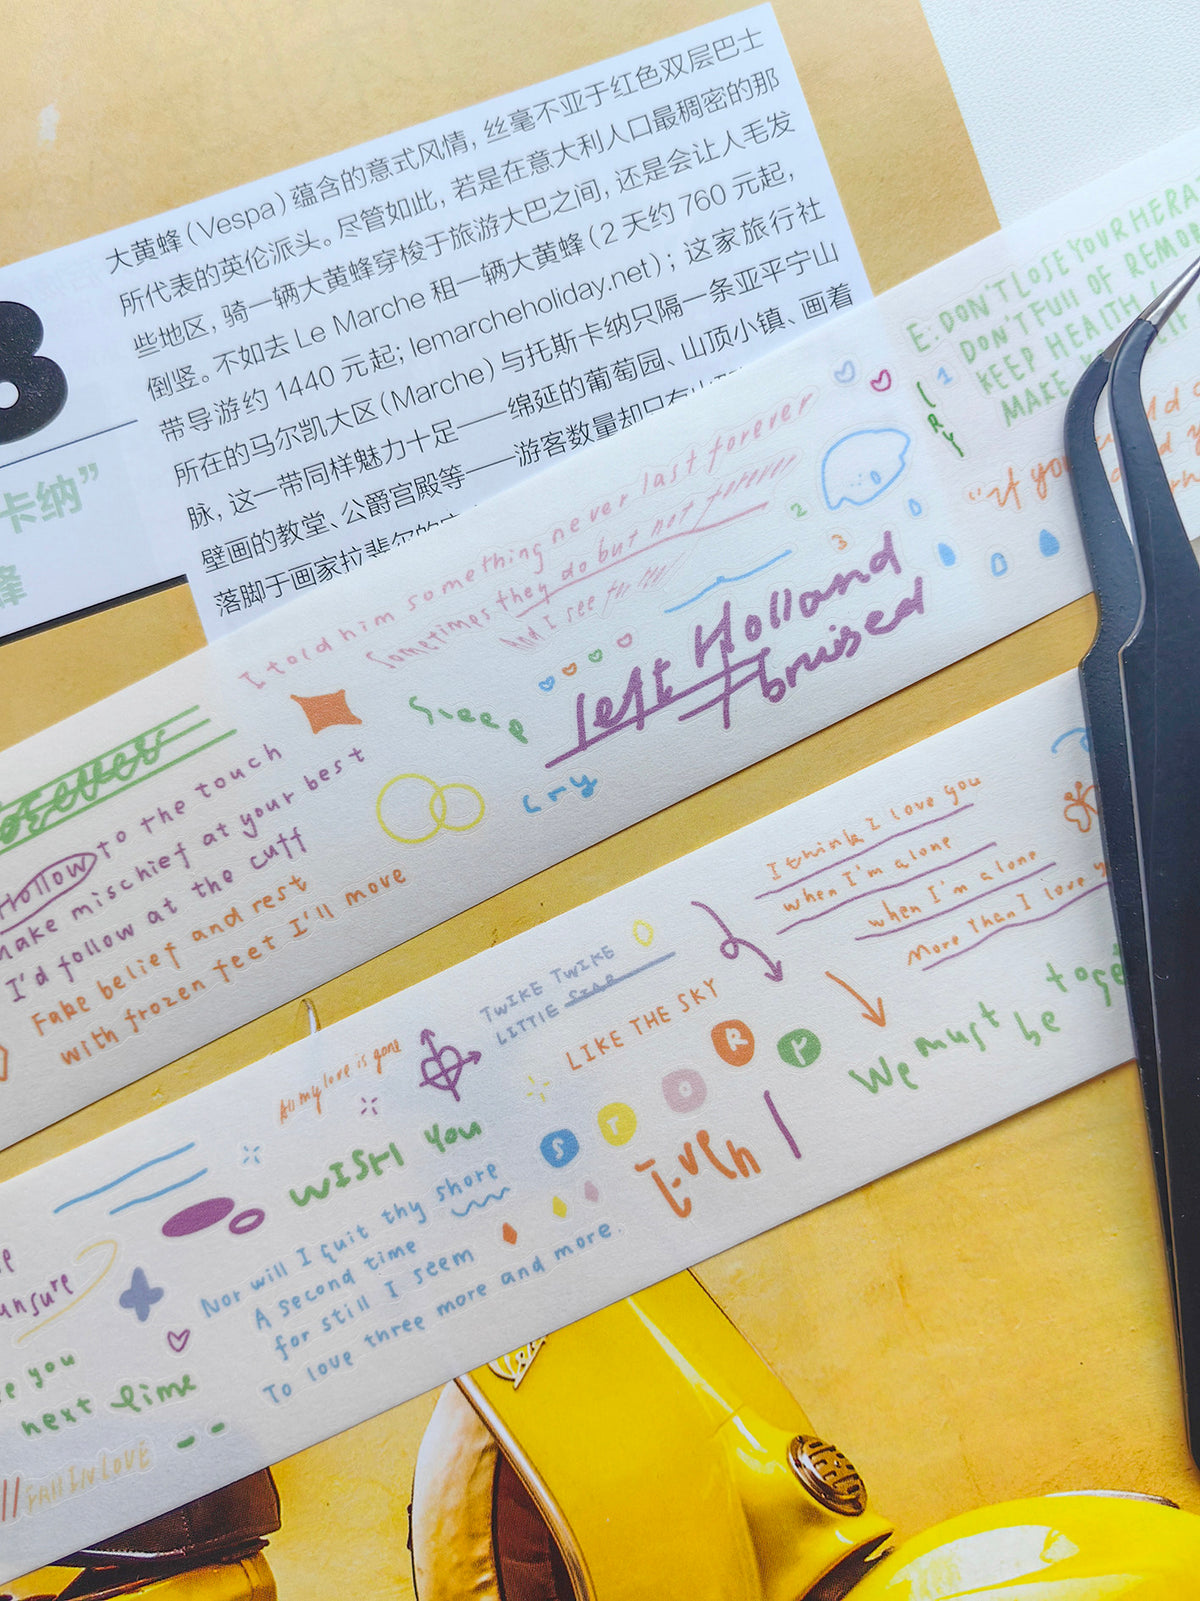 大黄蜂（Vespa）蕴含的意式风情，丝毫不亚于红色双层巴士
所代表的英伦派头。尽管如此，若是在意大利人口最稠密的那
些地区，骑一辆大黄蜂穿梭于旅游大巴之间，还是会让人毛发
倒竖。不如去 Le Marche 租一辆大黄蜂（2 天约 760 元起，
带导游约 1440 元起；lemarcheholiday.net）；这家旅行社
所在的马尔凯大区（Marche）与托斯卡纳只隔一条亚平宁山
脉，这一带同样魅力十足——绵延的葡萄园、山顶小镇、画着
壁画的教堂、公爵宫殿等——游客数量却只有
落脚于画家拉斐尔的
8
卡纳”
蜂
I told him something never last forever
Sometimes they do but not forever
And I see for
1
2
3
CRY
E: DON'T LOSE YOUR HERAT
DON'T FULL OF REMOR
KEEP HEALTH
MAKE
"if you
Sleep
left Holland
bruised
cry
Hollow to the touch
make mischief at your best
I'd follow at the cuff
Fake belief and rest
with frozen feet I'll move
I think I love you
when I'm alone
when I'm alone
More Than I love
TWIKE TWIKE
LITTLE STAR
LIKE THE SKY
All my love is gone
WISH YOU
STORY
Even I
We must be toge
unsure
Nor will I quit thy shore
A second time
for still I seem
To love three more and more.
you
next time
FALL IN LOVE